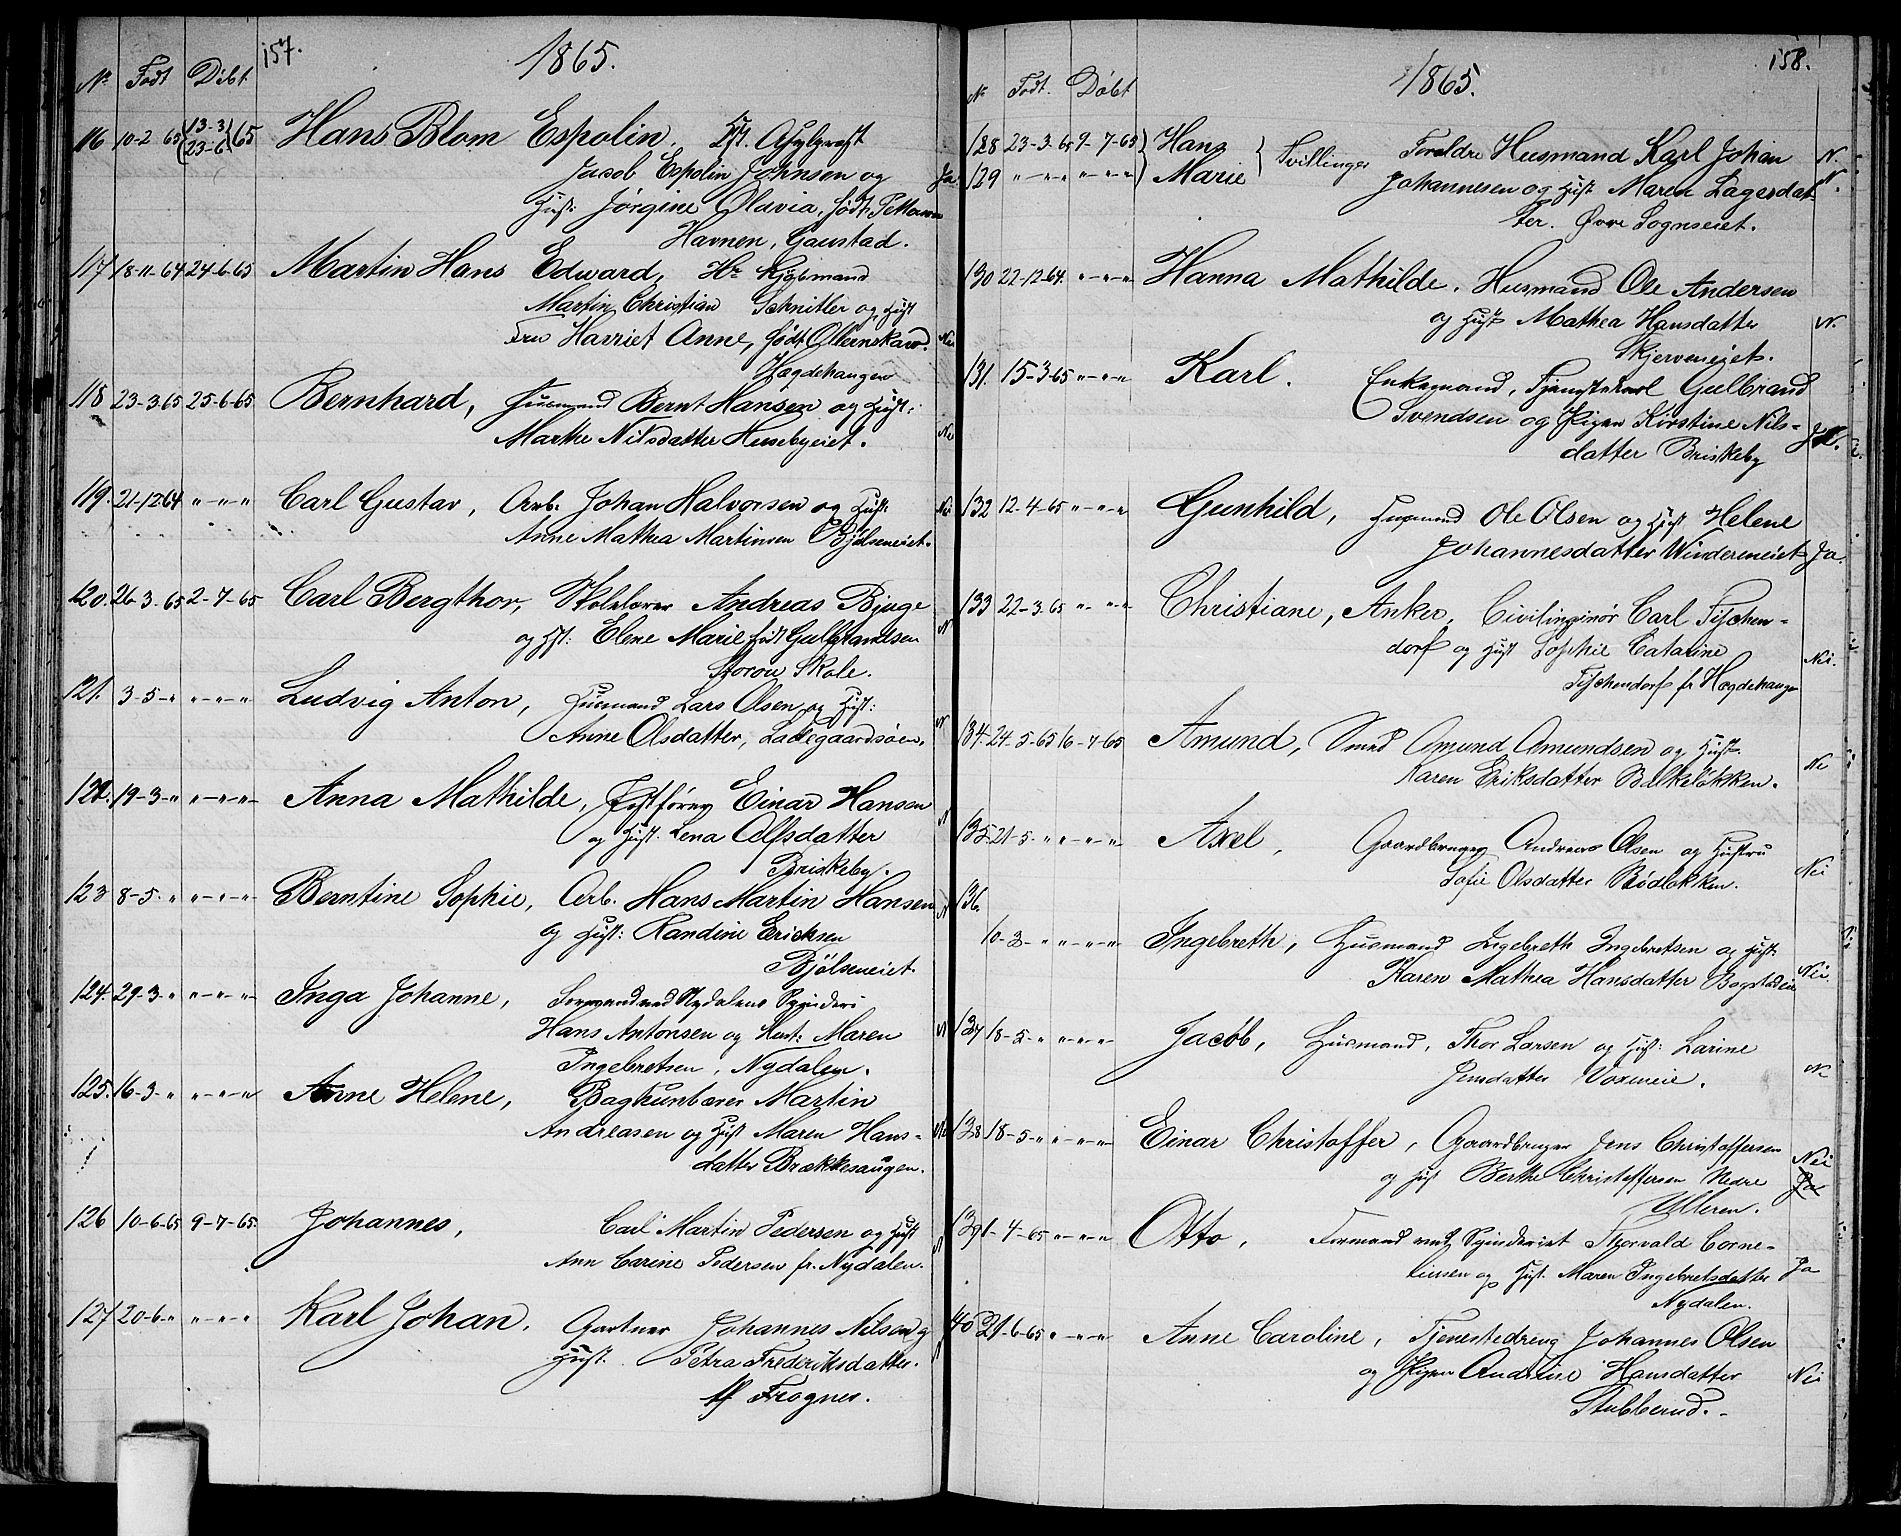 157.
1865.
No Født Døbt
116 10-2 65 {13-3 23-6} 65 Hans Blom Espolin. Hr. Asylprest
Jacob Espolin Johnsen og
Hust: Jørgine Olavia, født Pettersen
Havnen, Gaustad. Ja
117 18-11-64 24-6-65 Martin Hans Edward, Hr Kjøbmand
Martin Christian Schnitler og Hust
Fru Harriet Anne, født Ollernskaw. Nei
Hægdehaugen
118 23-3-65 25-6-65 Bernhard, Husmand Bernt Hansen og Hust:
Marthe Nilsdatter Husebyeiet. Nei
119. 21-12-64 " - " - " Carl Gustav, Arb. Johan Halvorsen og Hust: Nei
Anne Mathea Martinsen Bjølseneiet.
120. 26-3-65 2-7-65 Carl Bergthor, Skolelærer Andreas Bjuge
og Hst: Elene Marie født Gulbrandsen N
Storøen Skole.
121. 3-5-" " - " - " Ludvig Anton, Husmand Lars Olsen og Hust:
Anne Olsdatter, Ladegaardsøen. N
122. 19-3-" " - " - " Anna Mathilde, Postfører Einar Hansen
og Hust. Lena Alfsdatter N
Briskeby.
123 8-5-" " - " - " Berntine Sophie, Arb. Hans Martin Hansen N
og Hust: Randine Ericksen
Bjølseneiet
124. 29-3-" " - " - " Inga Johanne, Formand ved Nydalens Spinderi
Hans Antonsen og Hust: Maren N
Ingebretsen, Nydalen.
125. 16-3-" " - " - " Anne Helene, Martin
Andreasen og Hust Maren Hans- Nei
datter Brækkesaugen.
126 10-6-65 9-7-65. Johannes, Carl Martin Pedersen og Hust
Ann Carine Pedersen fr. Nydalen. N
127 20-6-" " - " - " Karl Johan. Gartner Johannes Nilsen og
Hust. Petra Frederiksdatter. N
Frogner.
158.
1865.
No Født. Døbt
128 23-3-65 9-7-65 Hans } Tvillinger Foreldre Husmand Karl Johan N.
129 " - " - " " - " - " Marie } Johannesen og Hust Maren Lagesdat- N.
ter. Øvre Sognseiet.
130 22-12-64. " - " - " Hanna Mathilde. Husmand Ole Andersen
og Hust Mathea Hansdatter N.
Skjerveneiet.
131. 15-3-65 " - " - " Karl. Enkemand, Tjenestekarl Gulbrand
Svendsen og Pigen Kirstine Nils-
datter Briskeby
132 12-4-65 " - " - " Gunhild, Husmand Ole Olsen og Hust Helene
Johannesdatter Winderneiet Ja.
133 22-3-65 " - " - " Christiane, Anker, Civilinginør Carl Tischen-
dorf og Hust Sophie Catarine Nei.
Tischendorf fr Hægdehaugen
134. 24-5-65 16-7-65 Amund, Smed Amund Amundsen og Hust.
Karen Eriksdatter Bakkeløkken. Nei
135. 21-5-" " - " - " Axel, Gaardbruger Andreas Olsen og Hustru
Sofie Olsdatter Rødløkken. Nei
136.
10-3-" " - " - " Ingebreth, Husmand Ingebreth Ingebretsen og Hust
Karen Mathea Hansdatter Bogstadeiet Nei.
137 18-5-" " - " - " Jacob, Husmand, Thor Larsen og Hust: Larine
Jensdatter Voxneeie. N
138 18-5-" " - " - " Einar Christoffer, Gaardbruger Jens Christoffersen
og Hust Berthe Christoffersen Nedre Nei Ja
Ulleren.
139 1-4-65 " - " - " Otto, Formand ved Spinderiet Thorvald Corne-
liusen og Hust. Maren Ingebretsdatter Ja
Nydalen.
140 21-6-65 " - " - " Anne Caroline, Tjenestedreng Johannes Olsen
og Pigen Andrine Hansdatter Nei
Stubberud.